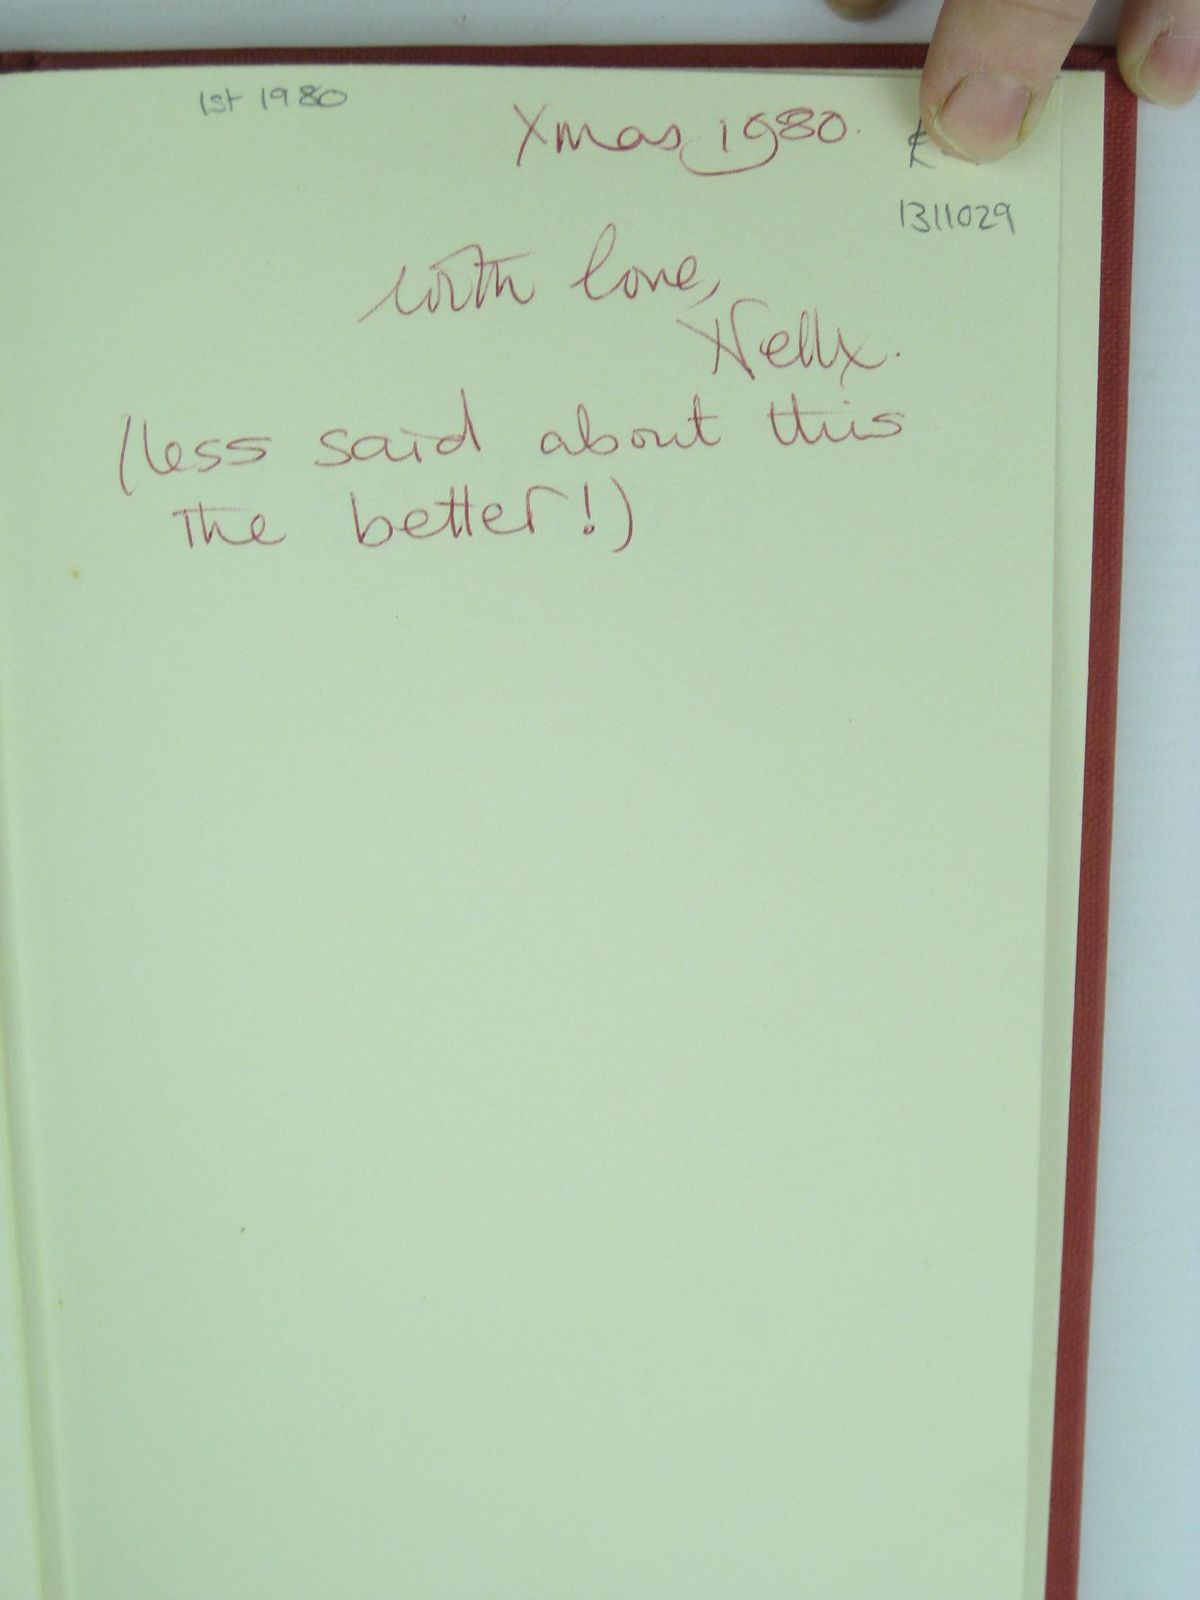 1st 1980
Xmas 1980.
£
1311029
with love,
Nellx.
(less said about this
the better!)